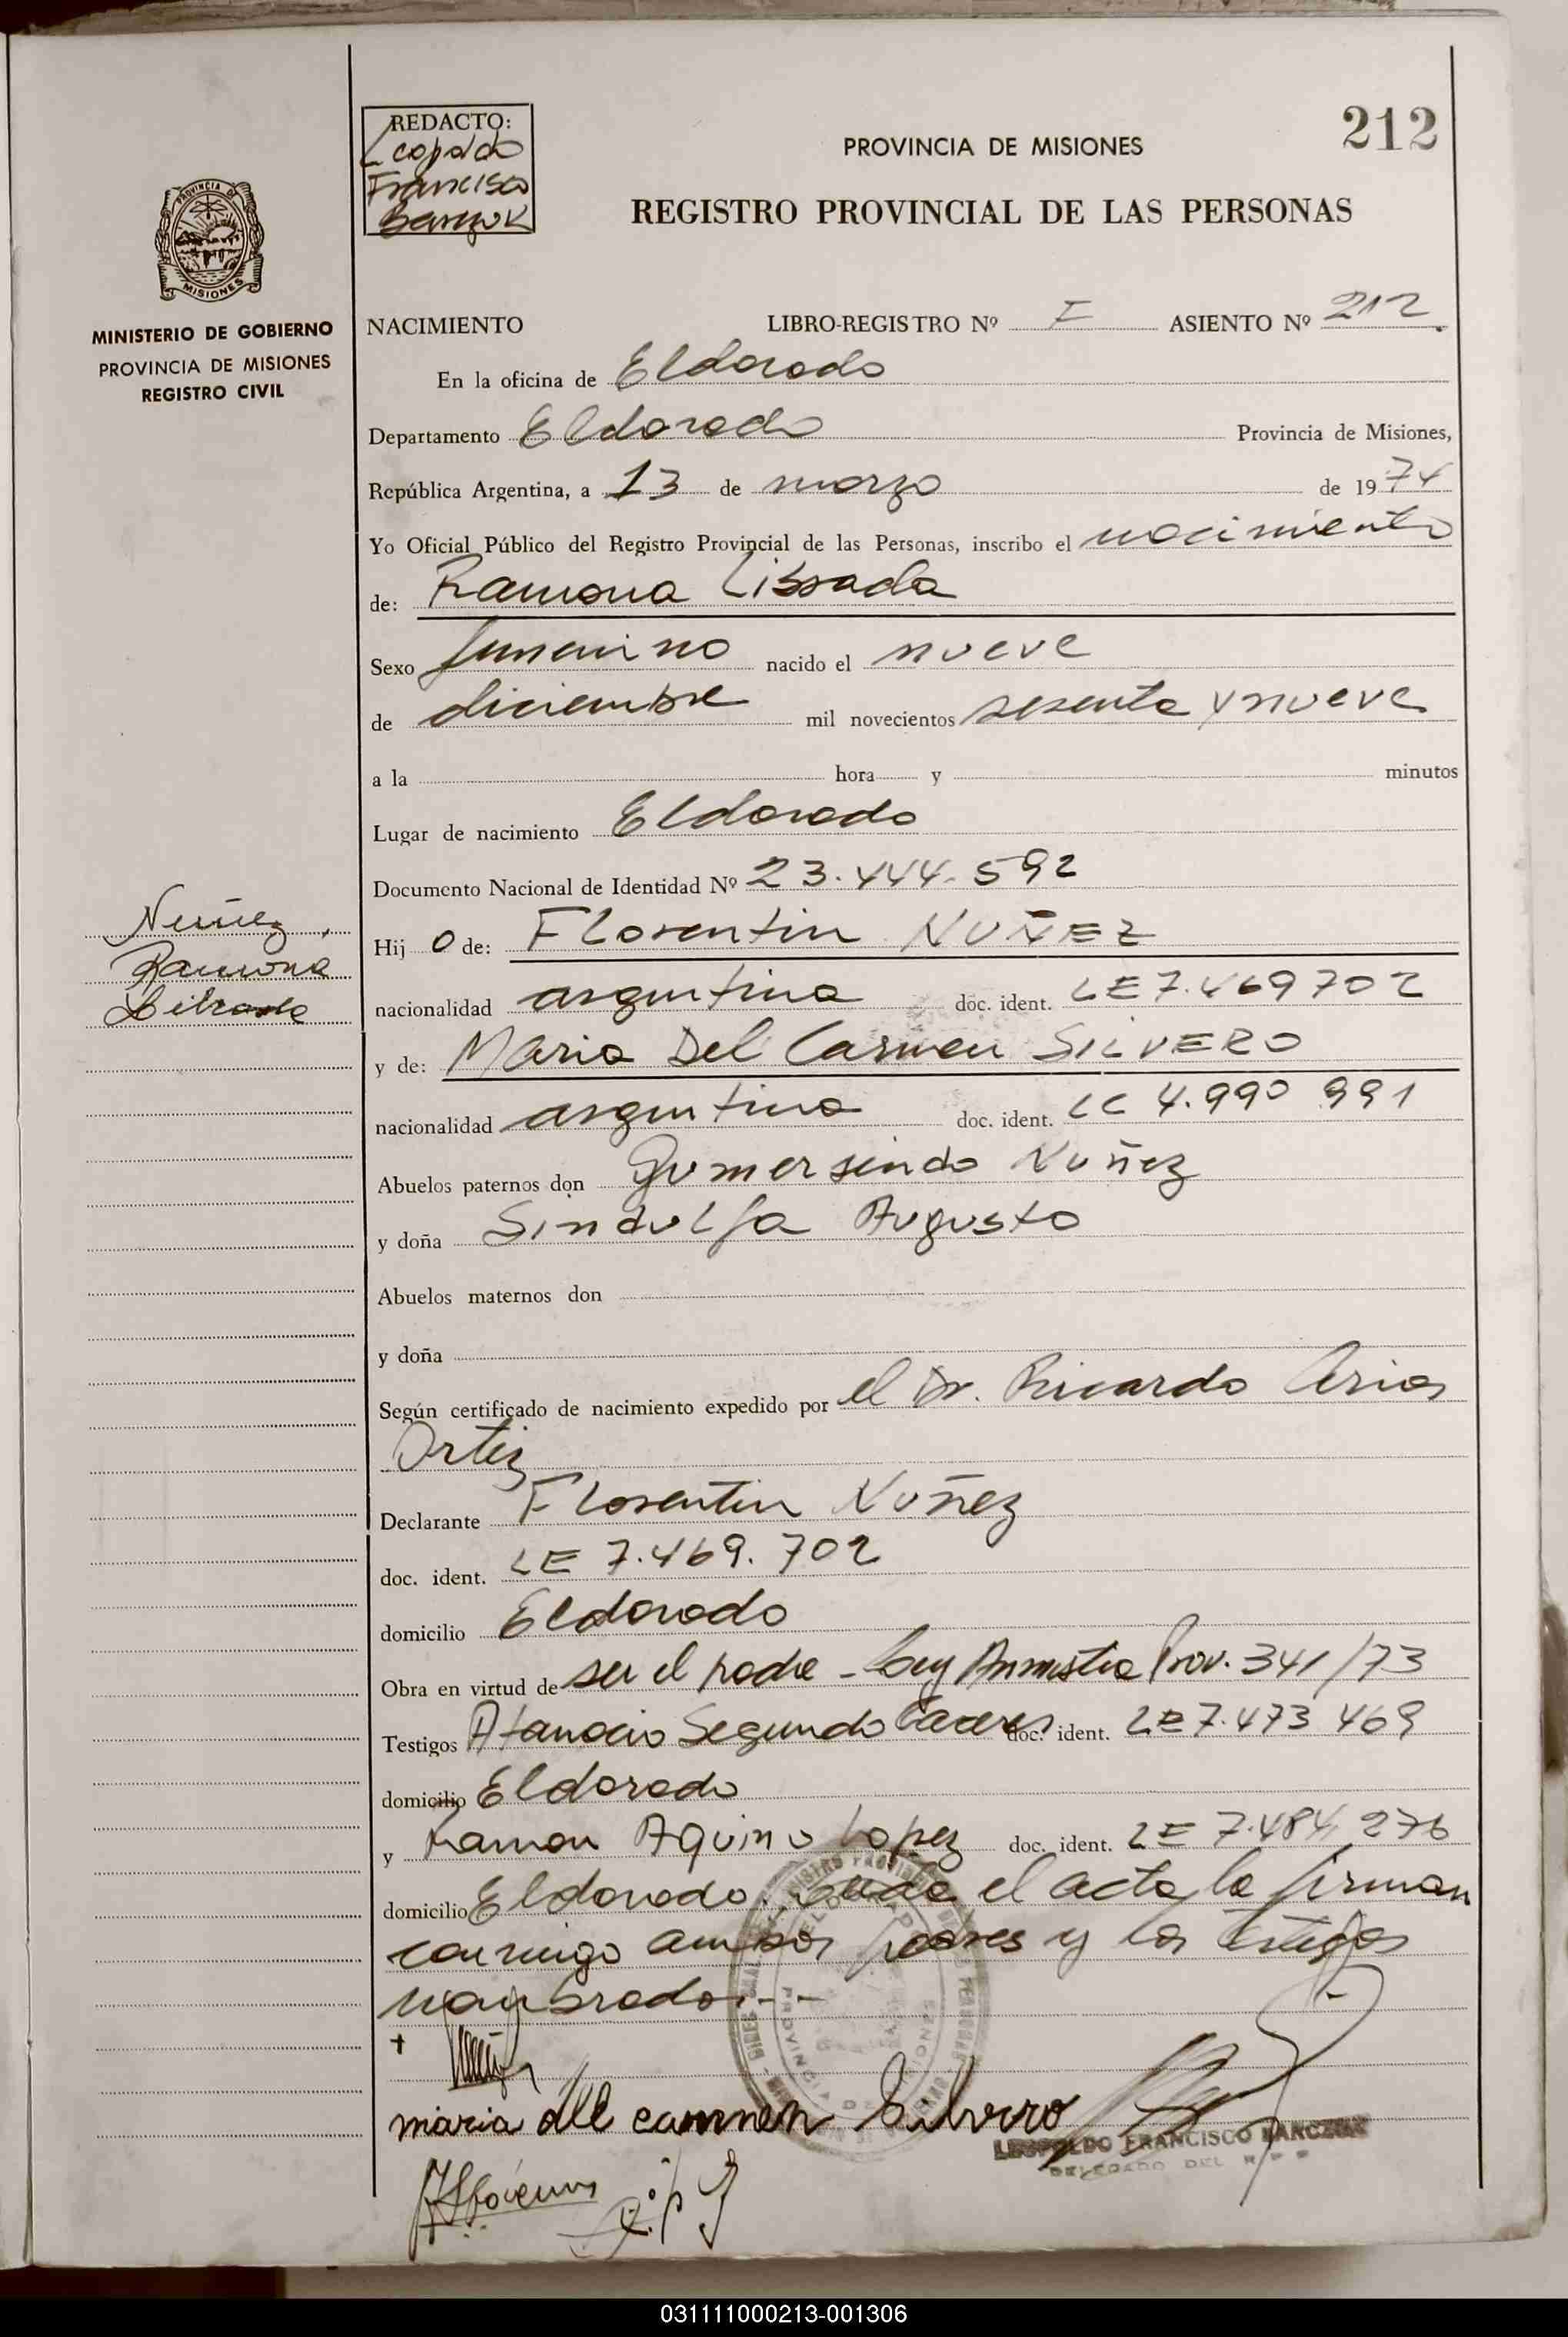 REDACTO:
Leopoldo
Francisco
PROVINCIA DE MISIONES
212
REGISTRO PROVINCIAL DE LAS PERSONAS
PROVINCIA DE
MISIONES
MINISTERIO DE GOBIERNO
PROVINCIA DE MISIONES
REGISTRO CIVIL
NACIMIENTO LIBRO-REGISTRO Nº I ASIENTO Nº 212
En la oficina de Eldorado
Departamento Eldorado Provincia de Misiones,
República Argentina, a 13 de marzo de 1974
Yo Oficial Público del Registro Provincial de las Personas, inscribo el nacimiento
de: Ramona Librada
Sexo femenino nacido el nueve
de diciembre mil novecientos sesenta y nueve
a la hora y minutos
Lugar de nacimiento Eldorado
Documento Nacional de Identidad Nº 23.444.592
Nuñez,
Ramona
Librada
Hij o de: Florentin NUÑEZ
nacionalidad argentina doc. ident. LE 7.469 702
y de: Maria Del Carmen SILVERO
nacionalidad argentina doc. ident. LC 4.990 991
Abuelos paternos don Gumersindo Nuñez
y doña Sindulfa Augusto
Abuelos maternos don
y doña
Según certificado de nacimiento expedido por el Dr. Ricardo Arias
Ortiz
Declarante Florentin Nuñez
doc. ident. LE 7.469.702
domicilio Eldorado
Obra en virtud de ser el padre - Ley Amnistia Prov. 341/73
Testigos Atanacio Segundo Caceres doc. ident. LE 7.473 469
domicilio Eldorado
y Ramon Aquino Lopez doc. ident. LE 7.484.276
domicilio Eldorado. Leida el acta la firman
conmigo ambos padres y los testigos
nombrados.--
maria del carmen Silvero
LEOPOLDO FRANCISCO
DELEGADO DEL R P P
031111000213-001306